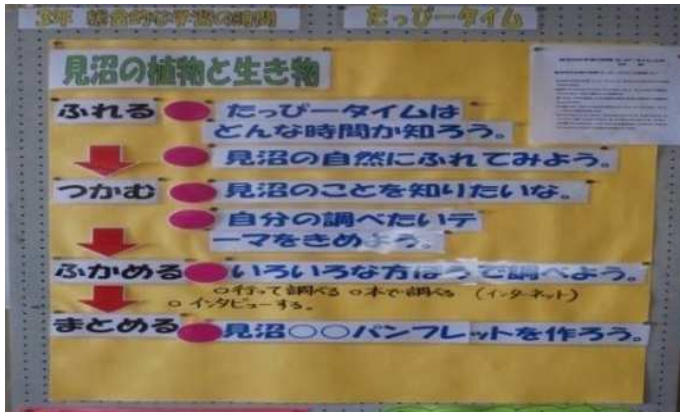 3年 総合的な学習の時間 たっぴータイム
見沼の植物と生き物
ふれる たっぴータイムは
どんな時間か知ろう。
見沼の自然にふれてみよう。
つかむ 見沼のことを知りたいな。
自分の調べたいテ
ーマをきめよう。
ふかめる いろいろな方ほうで調べよう。
○行って調べる ○本で調べる (インターネット)
○インタビューする。
まとめる 見沼○○パンフレットを作ろう。